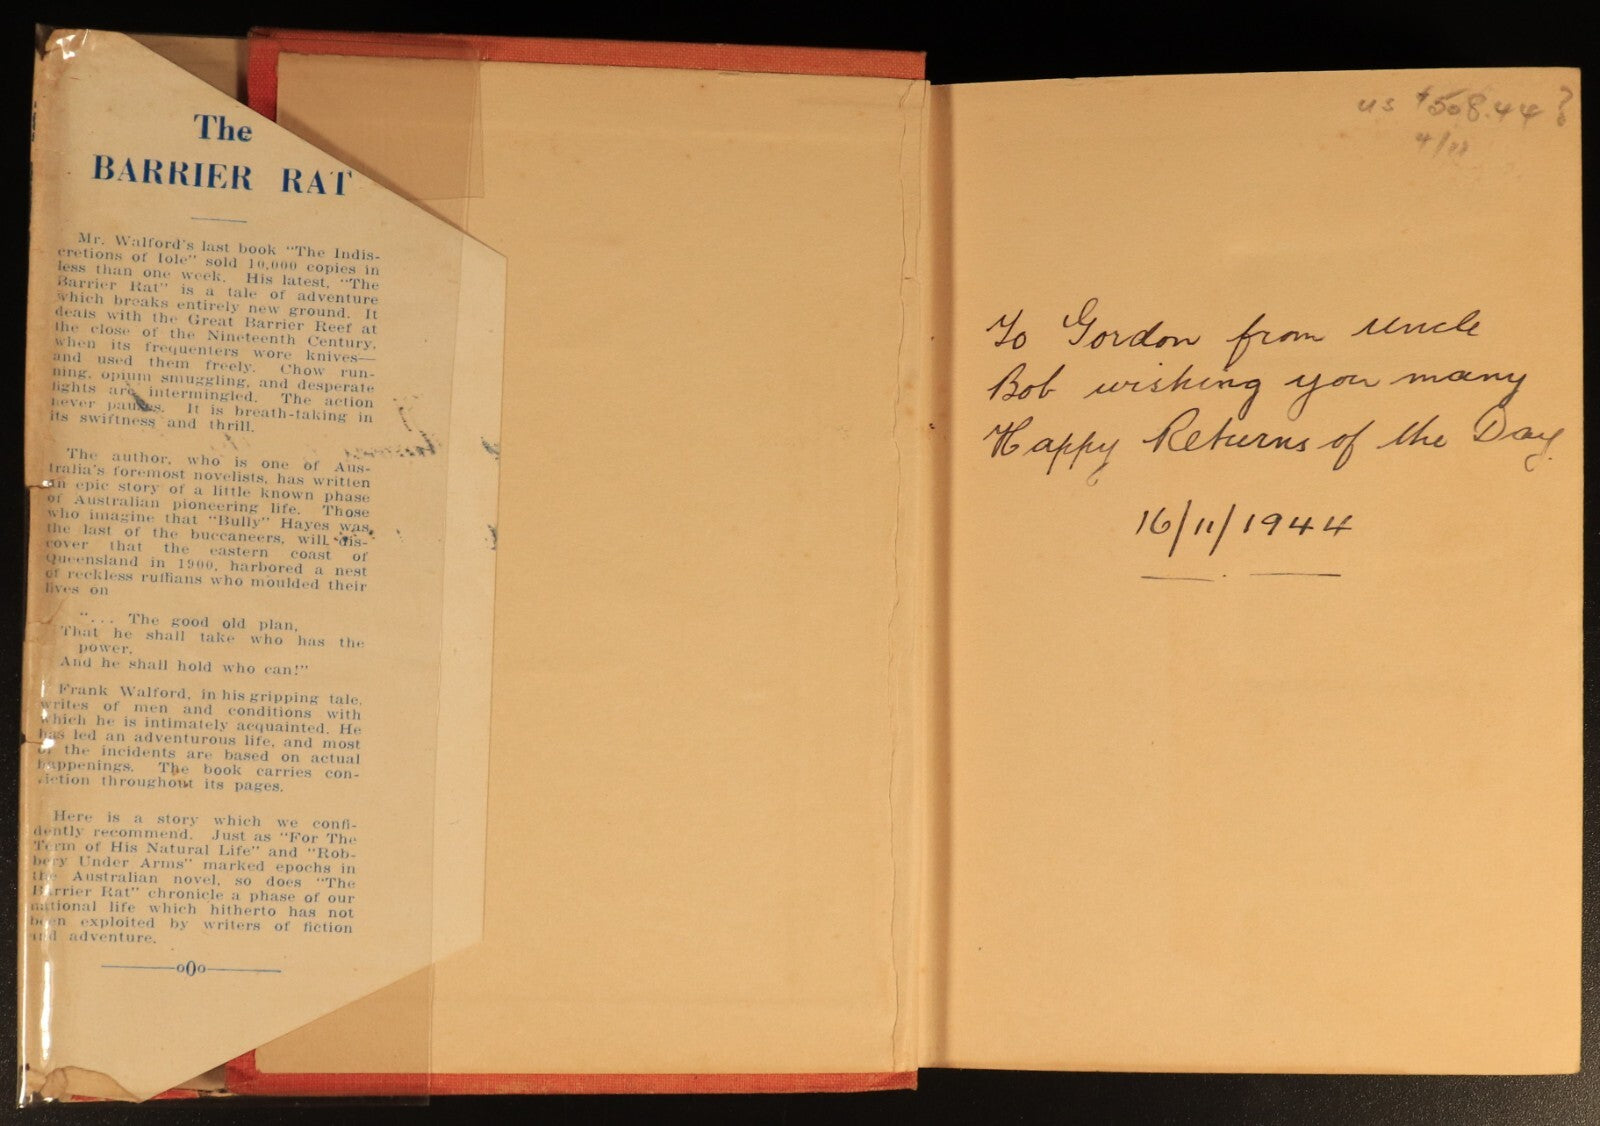 The
BARRIER RAT
Mr. Walford's last book "The Indis-
cretions of Iole" sold 10,000 copies in
less than one week. His latest, "The
Barrier Rat" is a tale of adventure
which breaks entirely new ground. It
deals with the Great Barrier Reef at
the close of the Nineteenth Century,
when its frequenters wore knives—
and used them freely. Chow run-
ning, opium smuggling, and desperate
fights are intermingled. The action
never pauses. It is breath-taking in
its swiftness and thrill.
The author, who is one of Aus-
tralia's foremost novelists, has written
an epic story of a little known phase
of Australian pioneering life. Those
who imagine that "Bully" Hayes was
the last of the buccaneers, will dis-
cover that the eastern coast of
Queensland in 1900, harbored a nest
of reckless ruffians who moulded their
lives on
"... The good old plan,
That he shall take who has the
power,
And he shall hold who can!"
Frank Walford, in his gripping tale,
writes of men and conditions with
which he is intimately acquainted. He
has led an adventurous life, and most
of the incidents are based on actual
happenings. The book carries con-
viction throughout its pages.
Here is a story which we confi-
dently recommend. Just as "For The
Term of His Natural Life" and "Rob-
bery Under Arms" marked epochs in
the Australian novel, so does "The
Barrier Rat" chronicle a phase of our
national life which hitherto has not
been exploited by writers of fiction
and adventure.
o0o
us $508.44?
To Gordon from Uncle
Bob wishing you many
Happy Returns of the Day.
16/11/1944